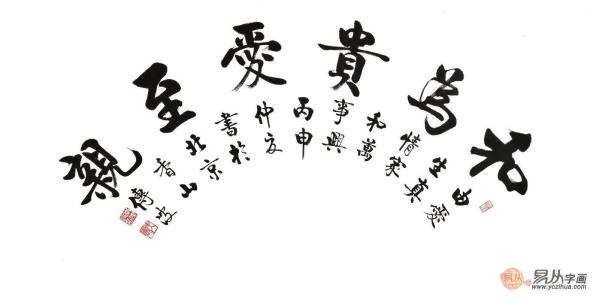 和為貴愛至親
由愛
生真
情家
和萬
事興
丙申
仲夏
書於
北京
香山
易从字画
www.yczihua.com